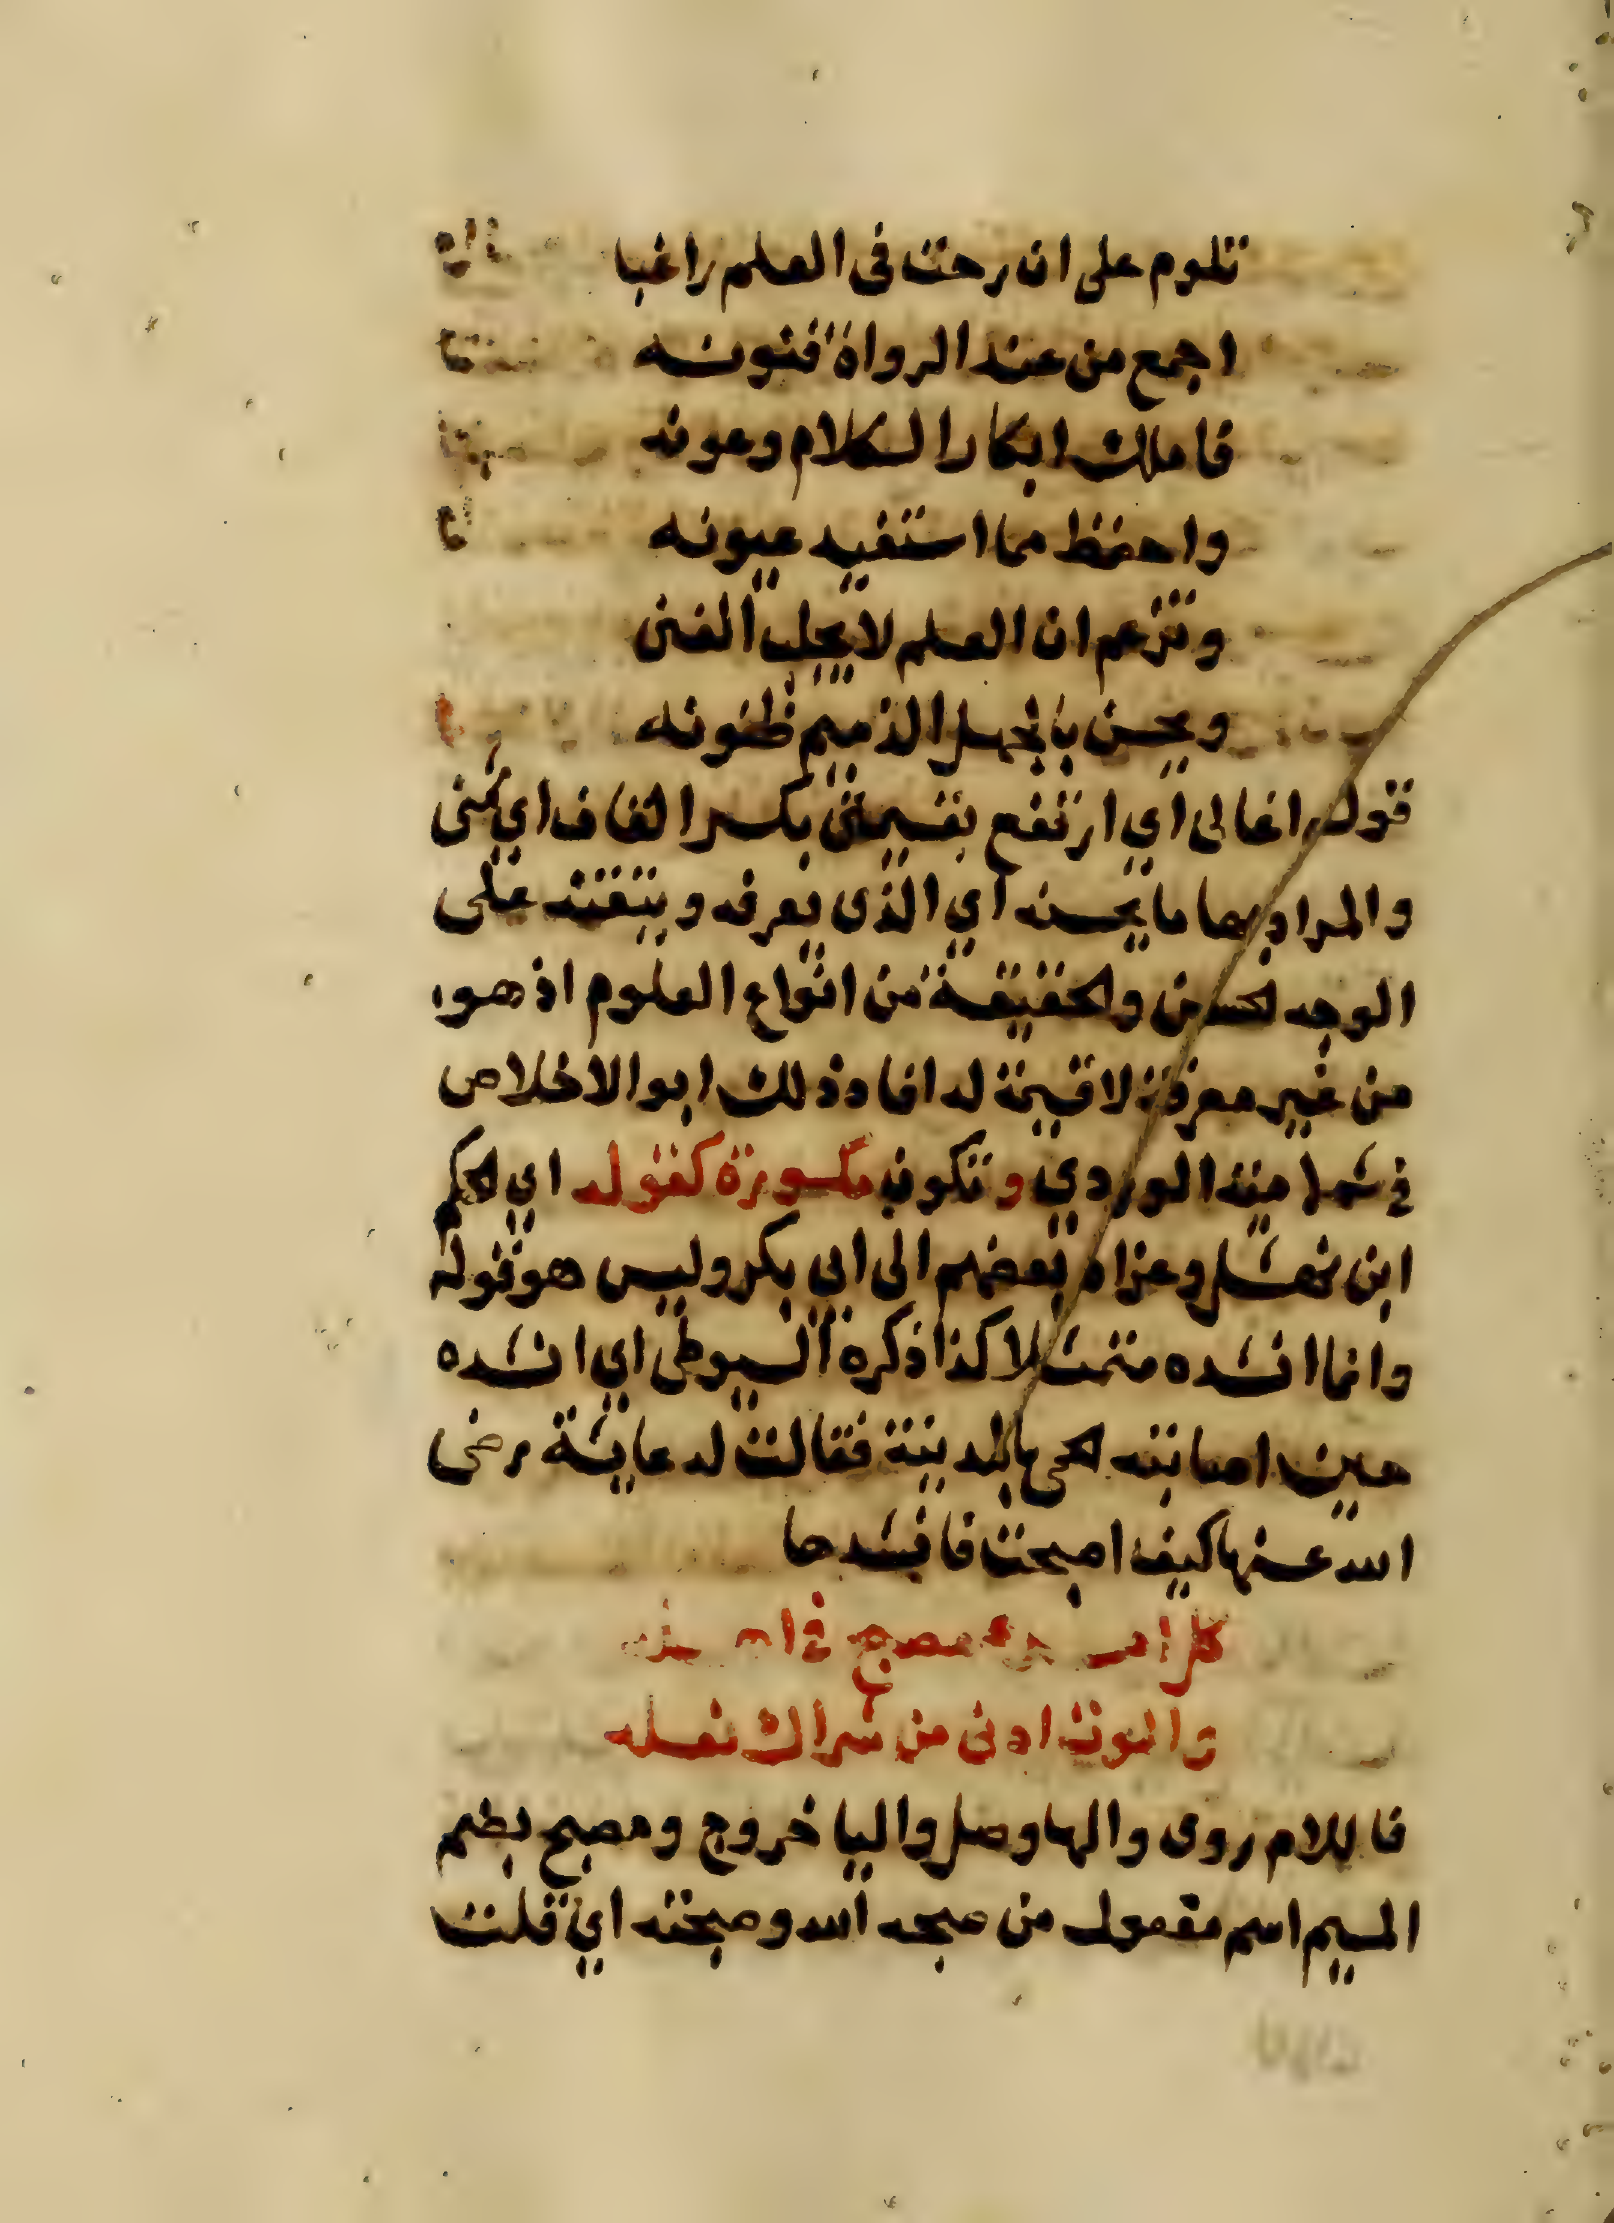 تلوم على ان رحت فى العلم راغبا
اجمع من عند الرواة فنونه
فاملك ابكار الكلام وعونه
واحفظ مما استفيد عيونه
وتزعم ان العلم لا يجلب الغنى
ويحسن بالجهل الذميم ظنونه
قوله اغالى اي ارتفع بقيمتى بكسر القاف اي ثمنى
والمراد بها ما يحسنه اي الذى يعرفه ويتقنه على
الوجه لحسن والحقيقة من انواع العلوم اذ هو
من غير معرفة لا قيمة له افاد ذلك ابو الاخلاص
في الوردي وتكون مكسورة كقوله اي لحكم
ابن نهشل وعزاه بعضهم الى ابى بكر وليس هو قوله
وانما انشده متمثلا كذا ذكره السيوطى اي انشده
حين اصابته لحمى بالمدينة فقالت له عايشة رضى
الله عنها كيف اصبحت فانشدها
كل امر مصبح في اهله
والموت ادنى من شراك نعله
فاللام روى والها وصل واليا خروج ومصبح بضم
الميم اسم مفعول من صبحه الله وصبحته اي قلت